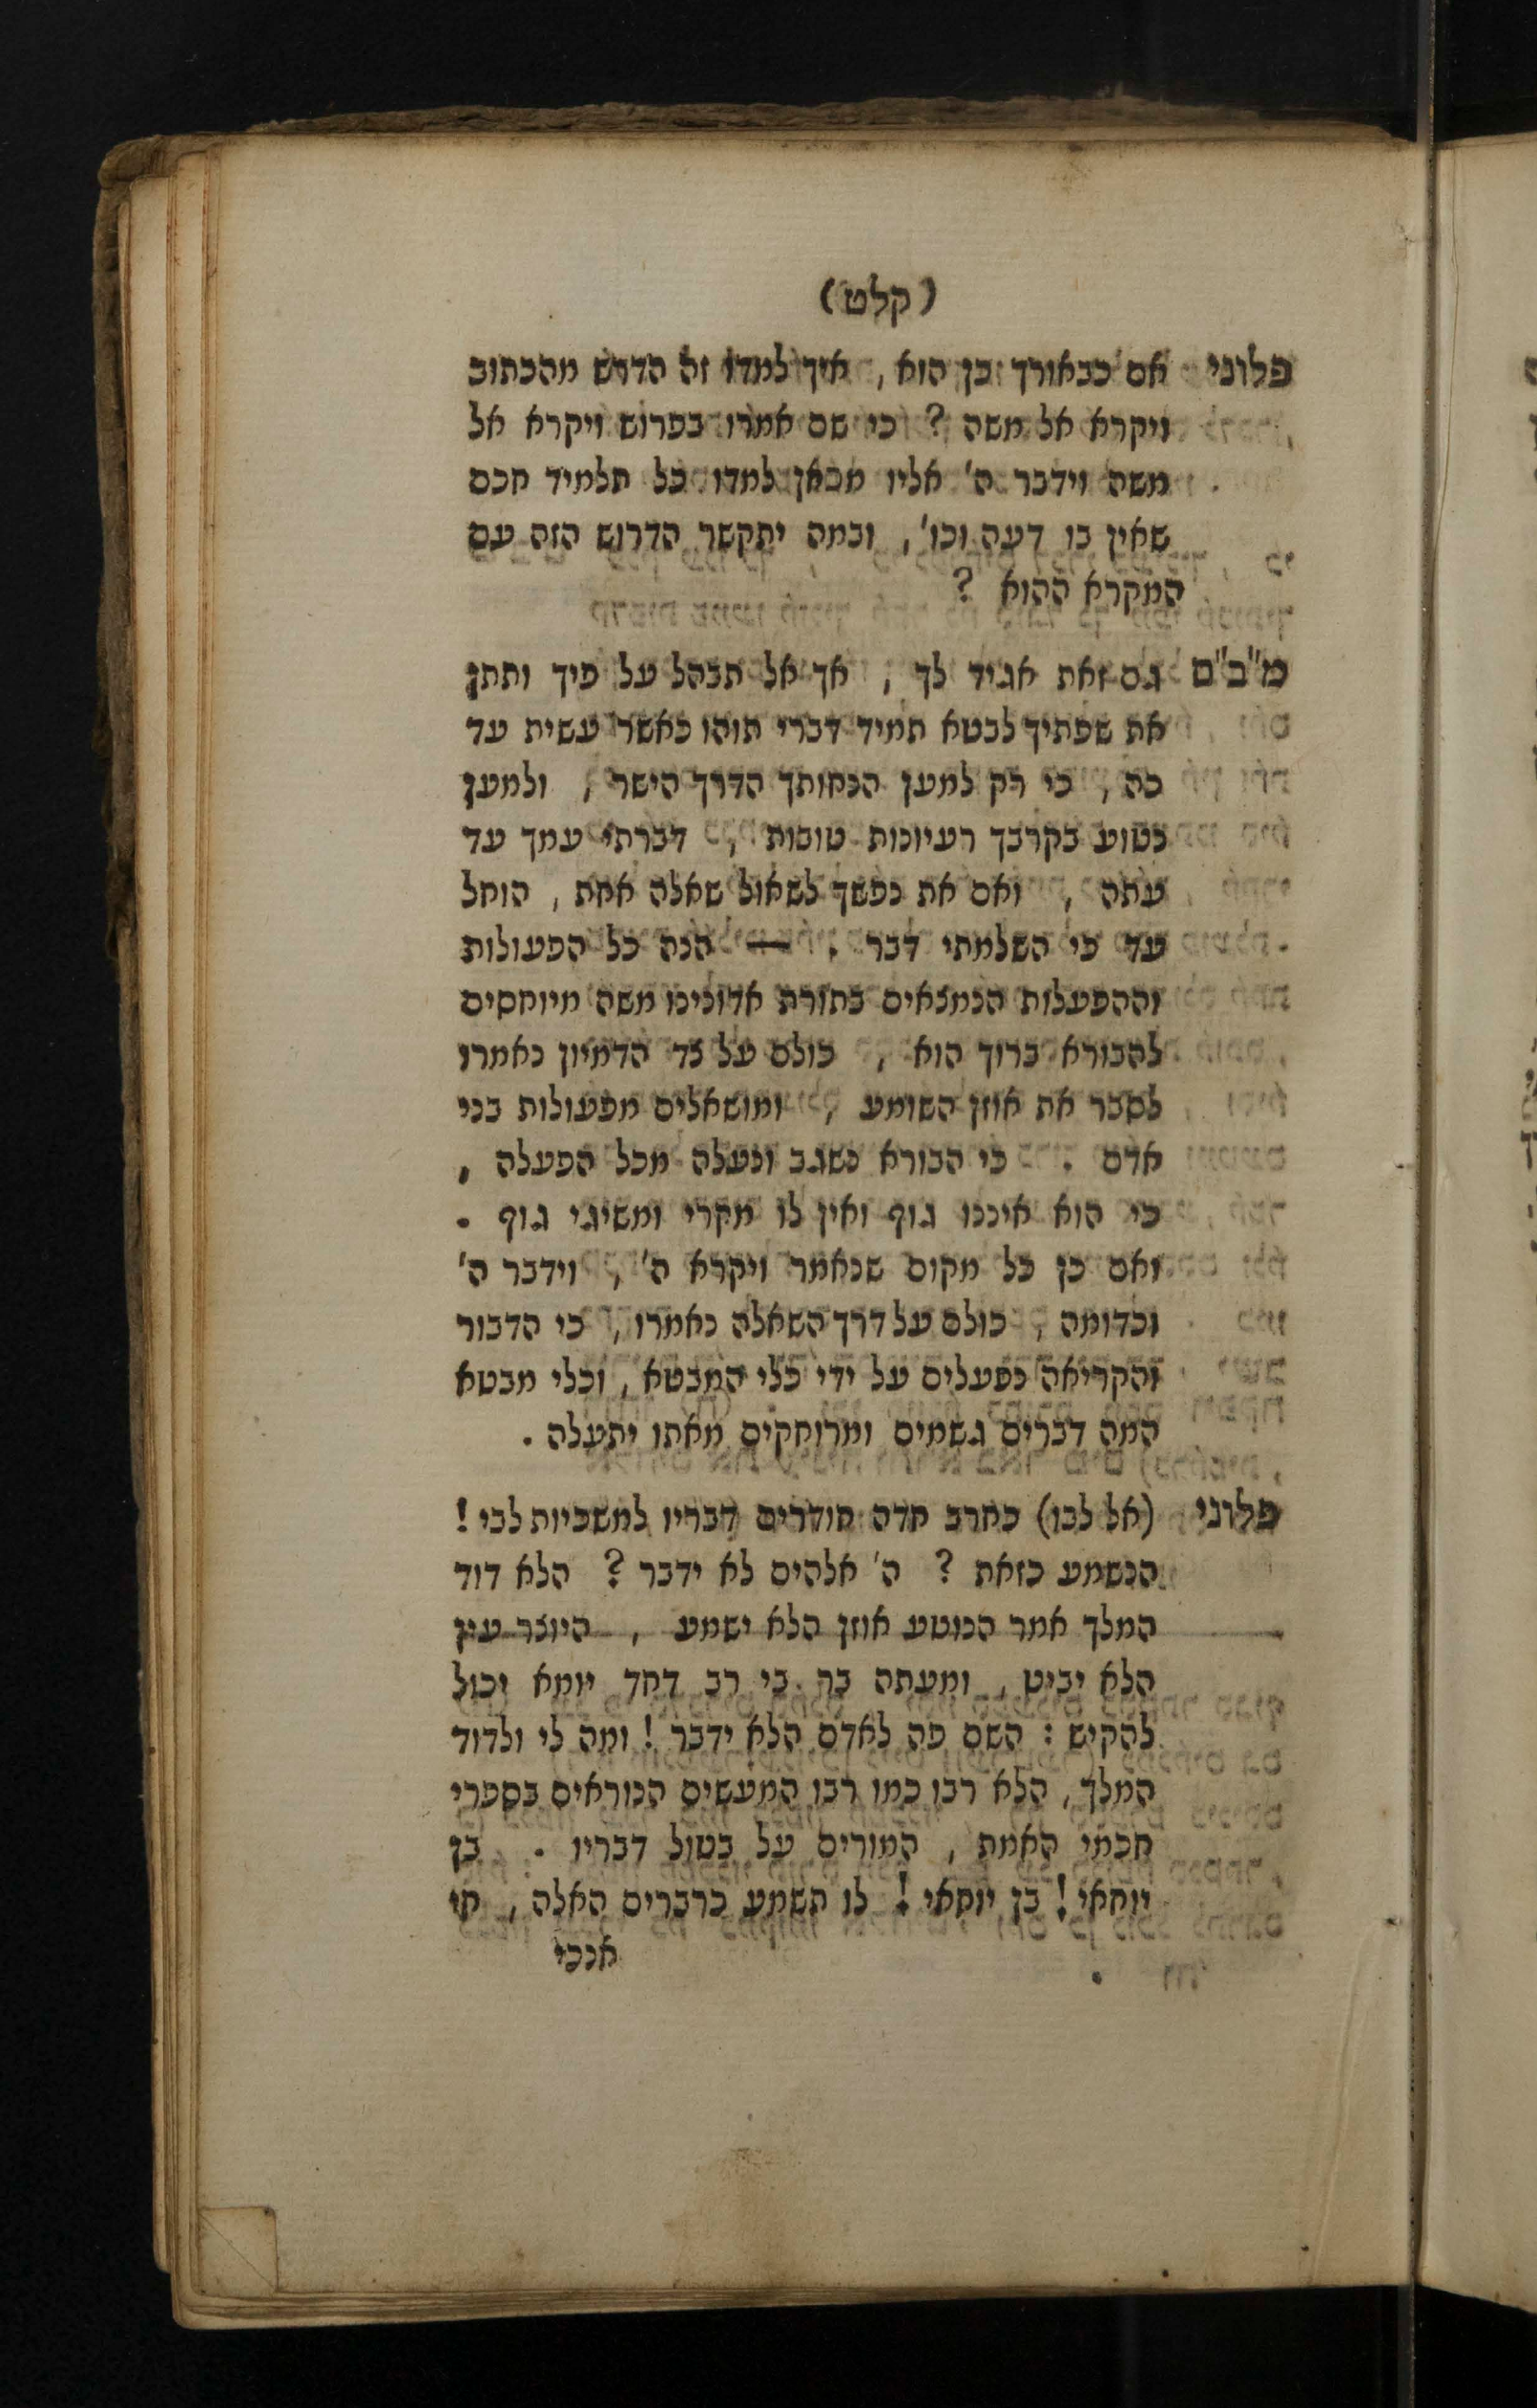 (קלט)
פלוני אם כבאורך כן הוא, איך למדו זה הדרש מהכתוב
ויקרא אל משה? כי שם אמרו בפרוש ויקרא אל
משה וידבר ה' אליו מכאן למדו כל תלמיד חכם
שאין בו דעה וכו', ובמה יתקשר הדרוש הזה עם
המקרא ההוא?
מ"ב"ם גם זאת אגיד לך, אך אל תבהל על פיך ותתן
את שפתיך לבטא תמיד דברי תוהו כאשר עשית עד
כה, כי רק למען הנחותך הדרך הישר, ולמען
נטוע בקרבך רעיונות טובות, דברתי עמך עד
עתה, ואם את נפשך לשאול שאלה אחת, הוחל
עד כי השלמתי דבר. — הנה כל הפעולות
וההפעלות הנמצאים בתורת אדונינו משה מיוחסים
להבורא ברוך הוא, כולם על צד הדמיון נאמרו
לסבר את אוזן השומע, ומושאלים מפעולות בני
אדם. כי הבורא נשגב ונעלה מכל הפעלה,
כי הוא איננו גוף ואין לו מקרי ומשיגי גוף.
ואם כן כל מקום שנאמר ויקרא ה', וידבר ה'
וכדומה, כולם על דרך השאלה נאמרו, כי הדבור
והקריאה נפעלים על ידי כלי המבטא, וכלי מבטא
המה דברים גשמים ומרוחקים מאתו יתעלה.
פלוני (אל לבו) כחרב חדה חודרים דבריו למשכיות לבי!
הנשמע כזאת? ה' אלהים לא ידבר? הלא דוד
המלך אמר הנוטע אוזן הלא ישמע, היוצר עין
הלא יביט, ומעתה בר בי רב דחד יומא יכול
להקיש: השם פה לאדם הלא ידבר! ומה לי ולדוד
המלך, הלא רבו כמו רבו המעשים הנוראים בספרי
חכמי האמת, המורים על בטול דבריו. בן
יוחאי! בן יוחאי! לו תשמע כדברים האלה, חי
אנכי